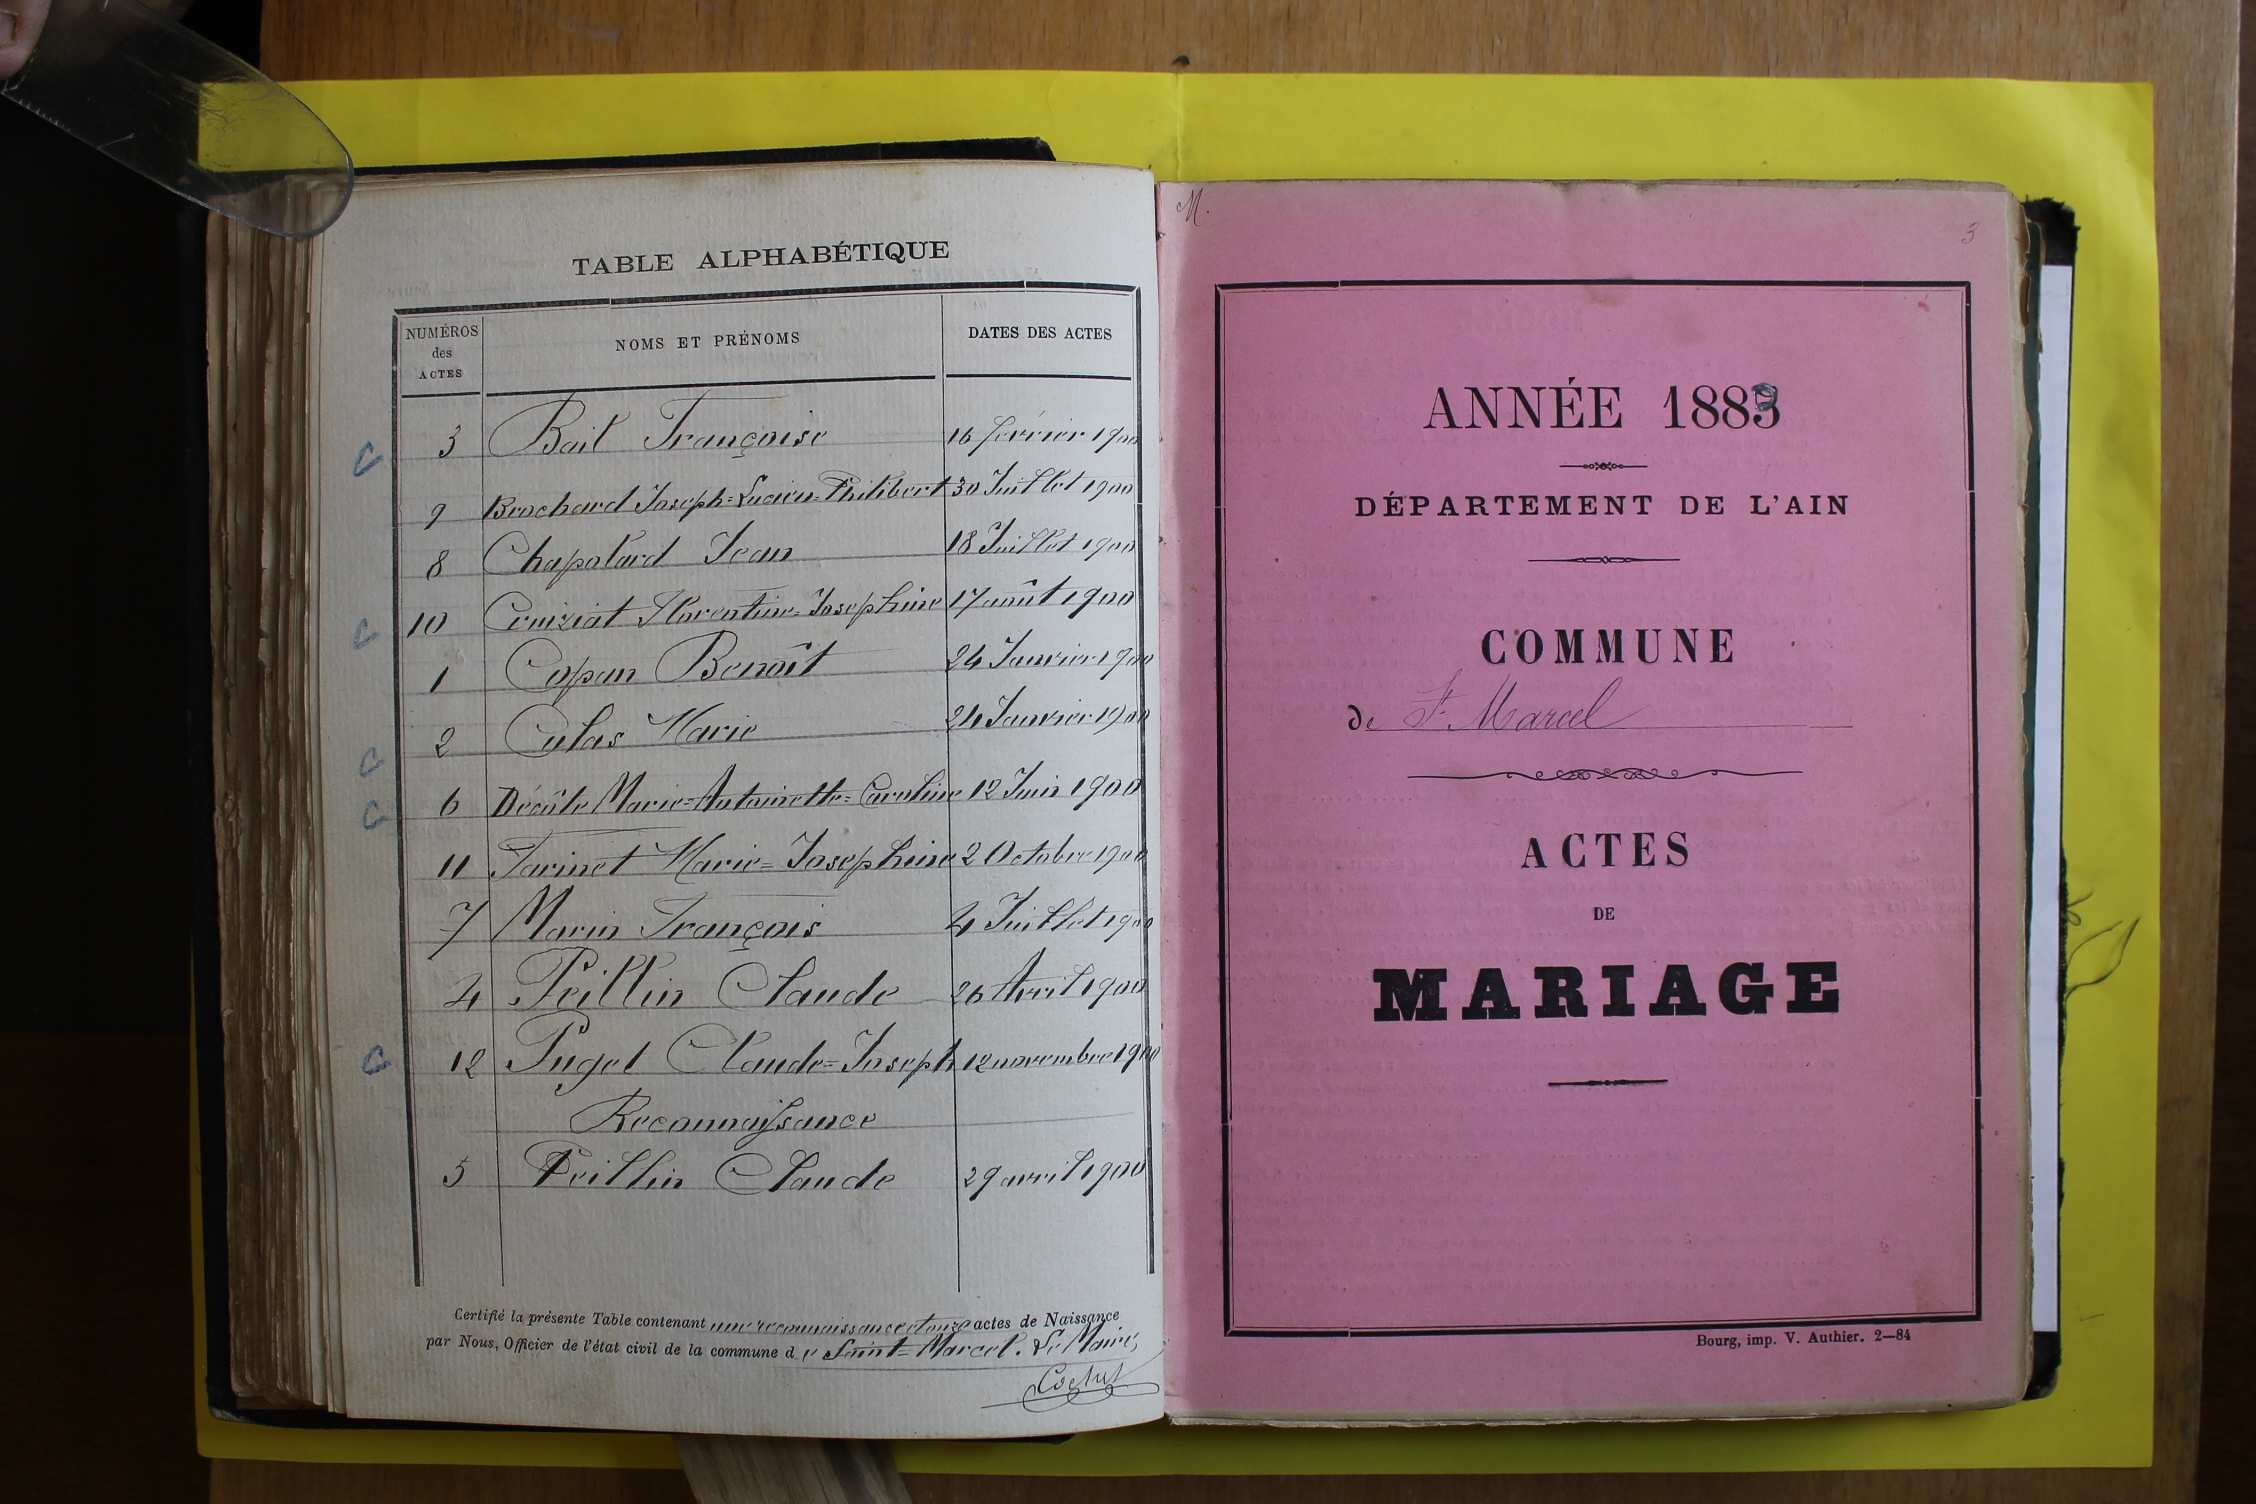 TABLE ALPHABÉTIQUE
NUMÉROS
des
ACTES
NOMS ET PRÉNOMS
DATES DES ACTES
C 3 Bail Françoise 16 février 1900
9 Brochard Joseph=Lucien=Philibert 30 Juillet 1900
8 Chapolard Jean 18 Juillet 1900
C 10 Cruiziat Florentine=Josephine 17 août 1900
1 Copan Benoît 24 Janvier 1900
C 2 Culas Marie 24 Janvier 1900
C 6 Décôte Marie=Antoinette=Caroline 12 Juin 1900
11 Farinet Marie=Josephine 2 Octobre 1900
7 Marin François 4 Juillet 1900
4 Peillin Claude 26 Avril 1900
C 12 Puget Claude=Joseph 12 novembre 1900
Reconnaissance
5 Peillin Claude 29 avril 1900
Certifié la présente Table contenant une reconnaissance et onze actes de Naissance
par Nous, Officier de l'état civil de la commune de Saint=Marcel. Le Maire,
Cochet
M.
3
ANNÉE 1883
DÉPARTEMENT DE L'AIN
COMMUNE
de St Marcel
ACTES
DE
MARIAGE
Bourg, imp. V. Authier. 2—84